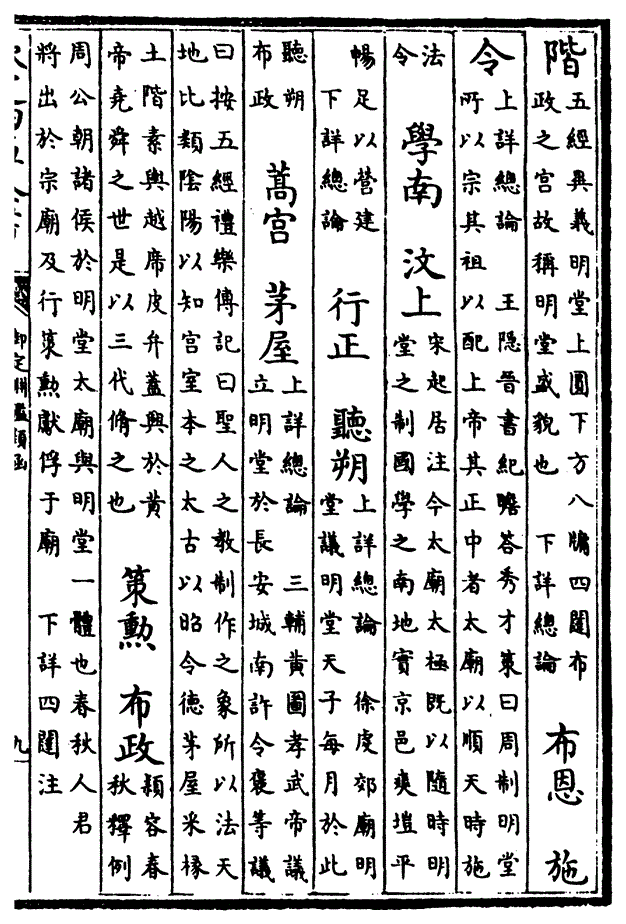 階
五經異義明堂上圓下方八牖四闥布
政之宮故稱明堂盛貌也　下詳總論
布恩　施
令
上詳總論　王隱晉書紀瞻答秀才策曰周制明堂
所以宗其祖以配上帝其正中者太廟以順天時施
法
令
學南　汶上
宋起居注今太廟太極既以隨時明
堂之制國學之南地實京邑爽塏平
暢足以營建
下詳總論
行正　聽朔
上詳總論　徐虔郊廟明
堂議明堂天子每月於此
聽朔
布政
蒿宮　茅屋
上詳總論　三輔黃圖孝武帝議
立明堂於長安城南許令褒等議
曰按五經禮樂傳記曰聖人之教制作之象所以法天
地比類陰陽以知宮室本之太古以昭令德茅屋采椽
土階素輿越席皮弁蓋興於黃
帝堯舜之世是以三代脩之也
策勲　布政
潁容春
秋釋例
周公朝諸侯於明堂太廟與明堂一體也春秋人君
將出於宗廟及行策勲獻俘于廟　下詳四闥注
御定淵鑑類函
九